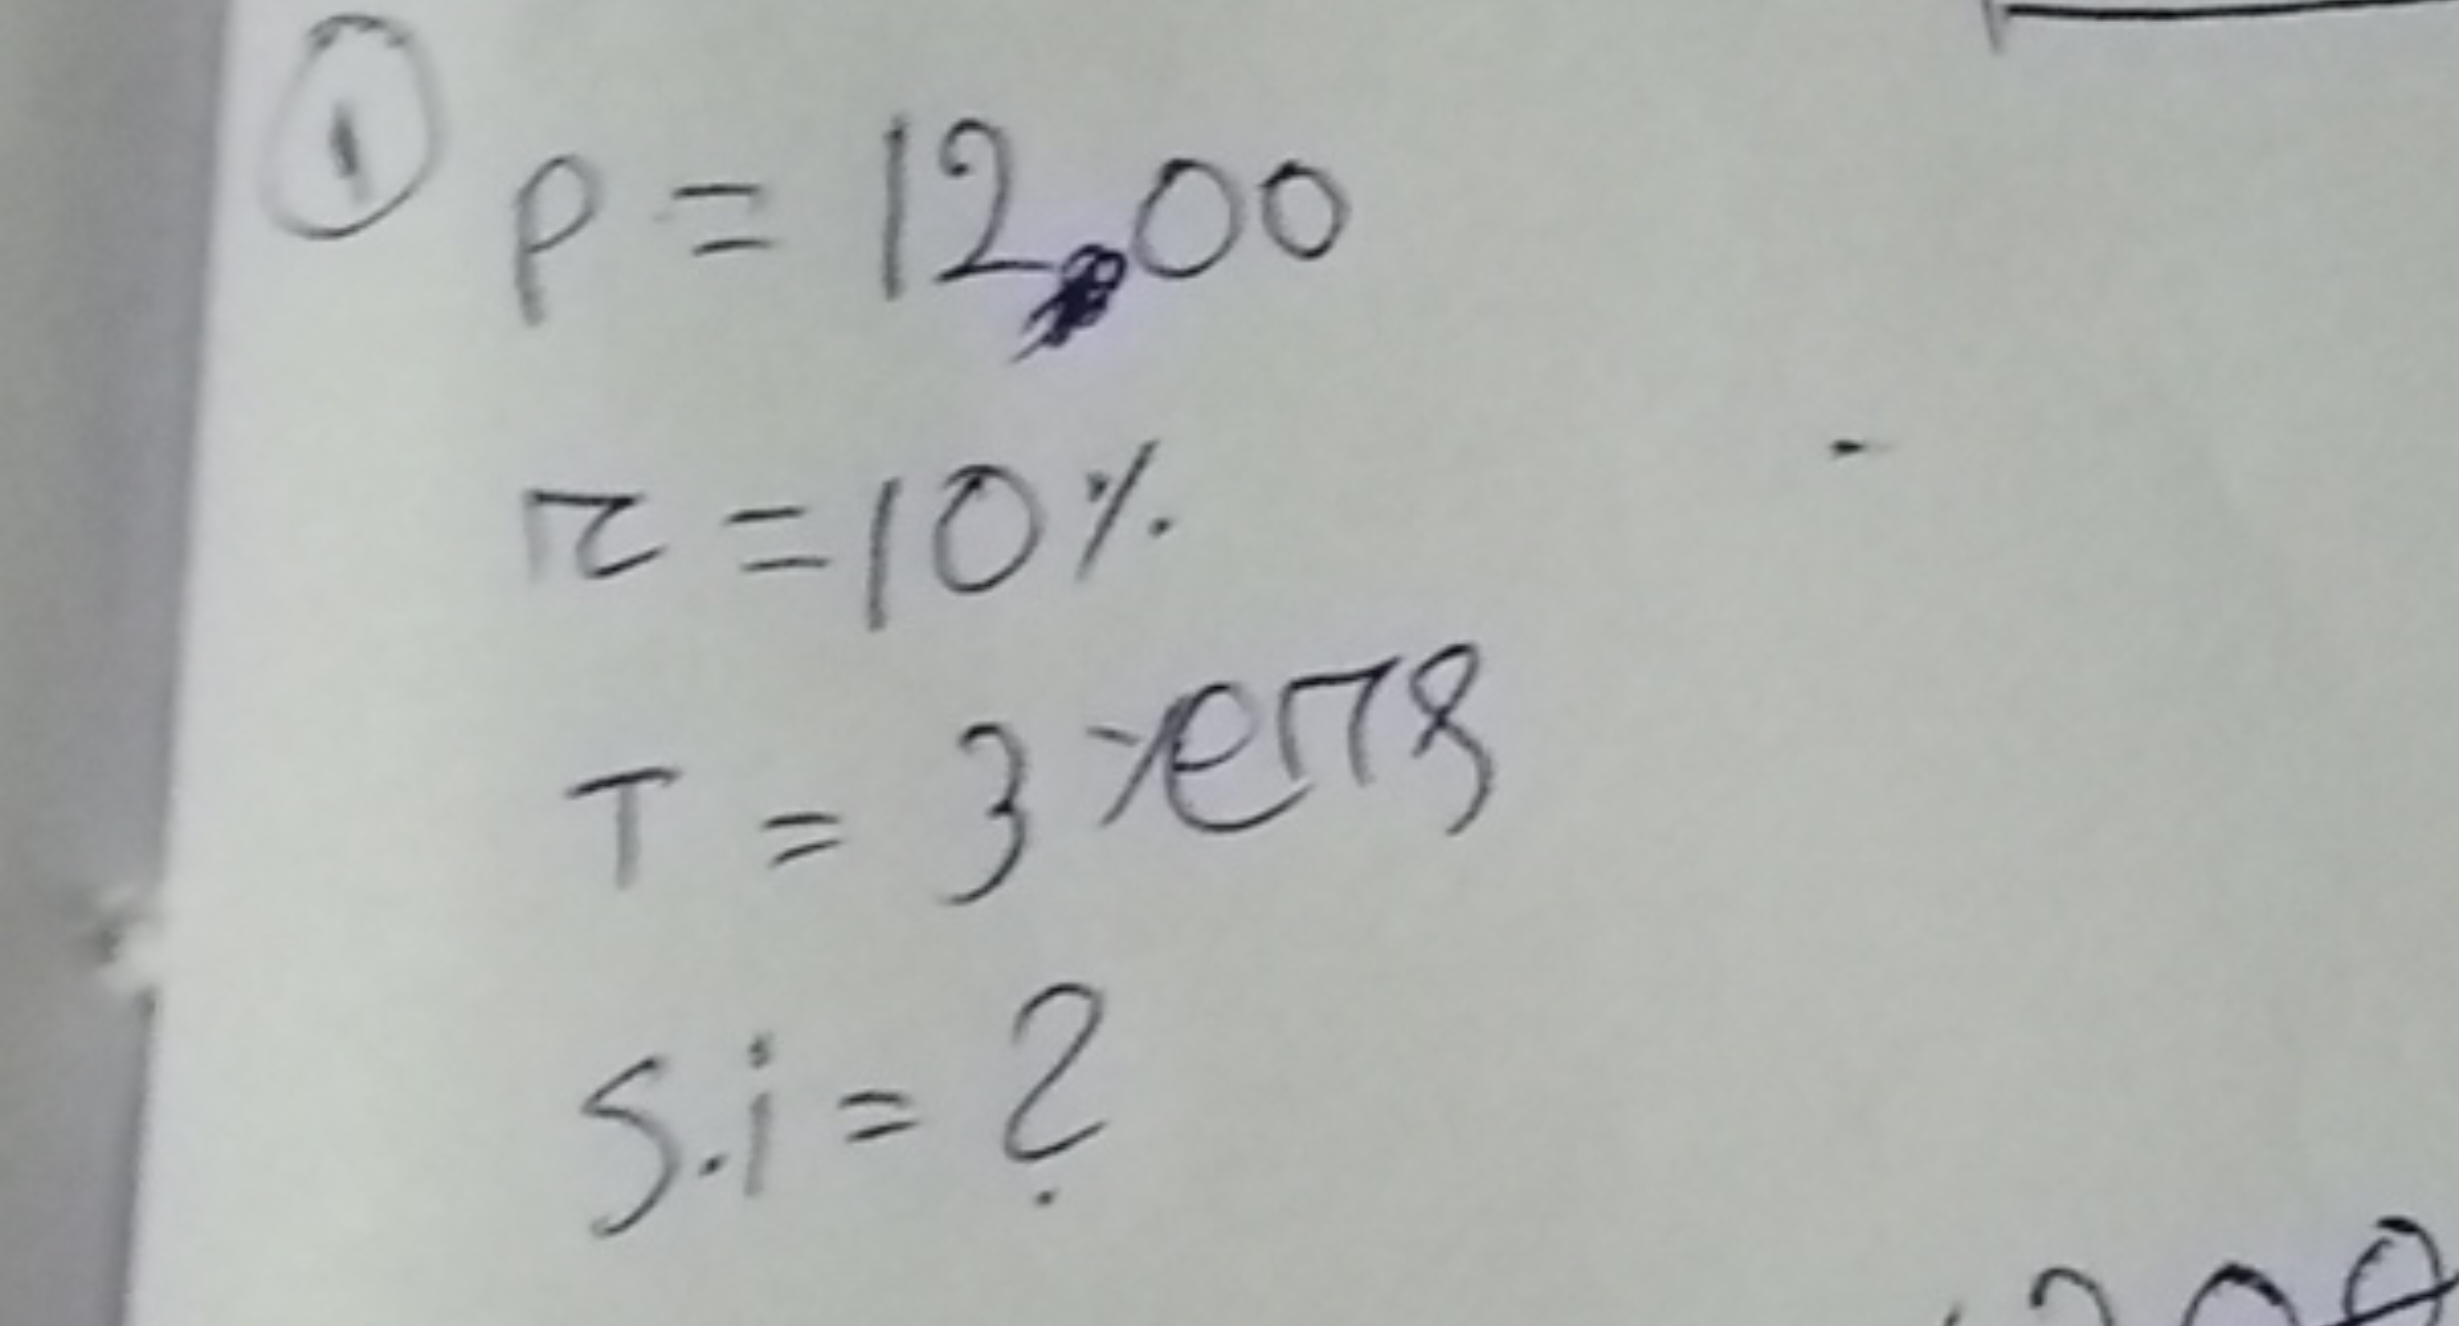 ① P = 1200
r = 10%
T = 3 yers
S.i = ?